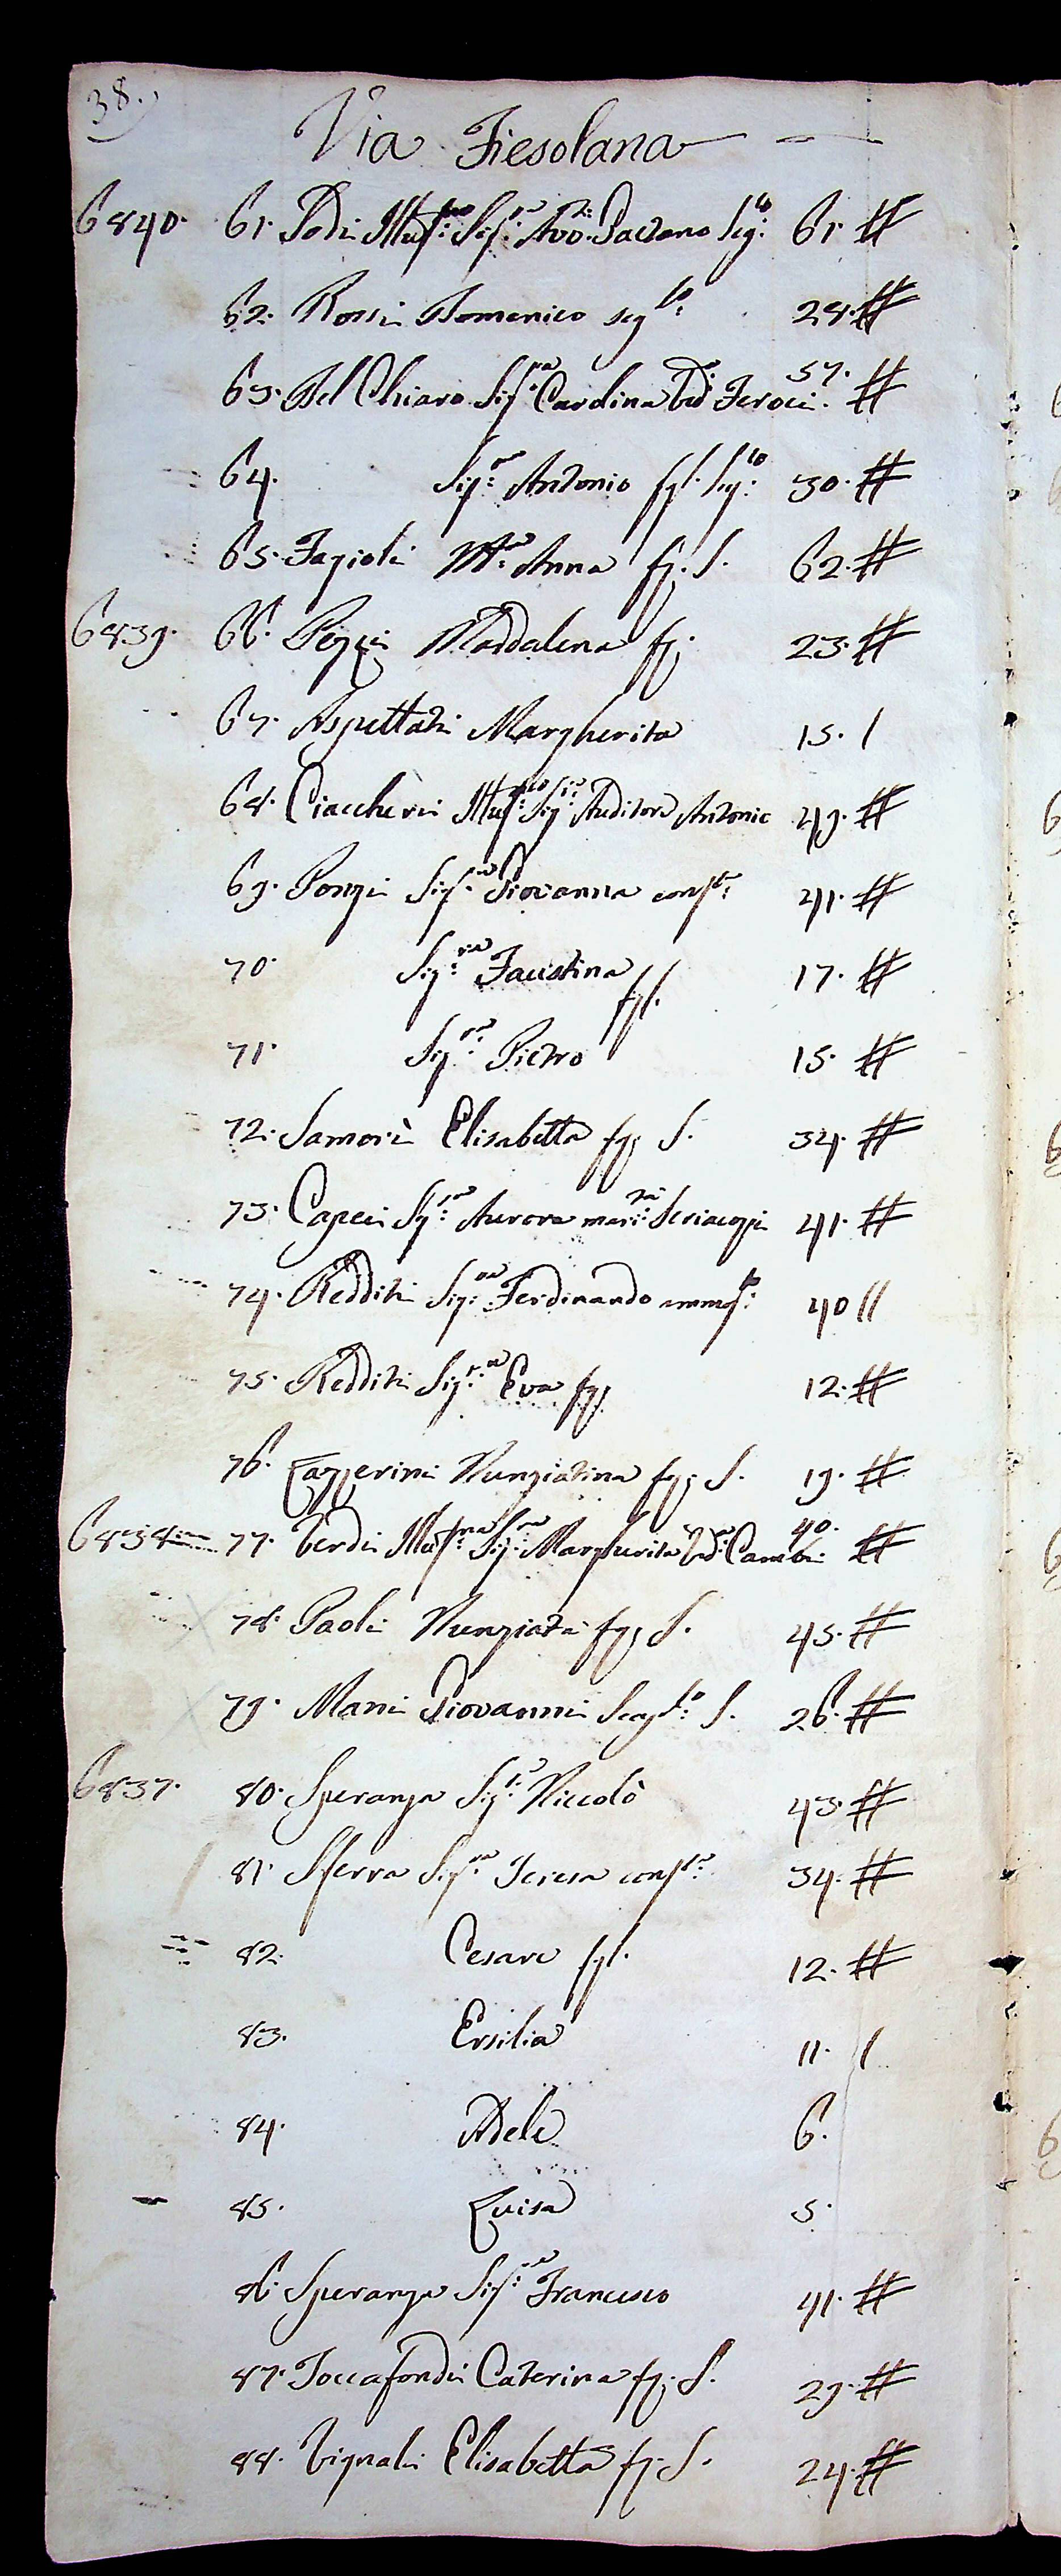 38.
Via Fiesolana
6840. 61. Dodi Illus:mo Sig:re Avv: Gaetano seg:to 61. #
62. Rossi Domenico seg:to 28. #
63. Del Chiaro Sig:ra Carolina Vd:a Feroci. 57. #
64. Sig:re Antonio fgl. seg:to 30. #
65. Fagioli M:a Anna fg. S. 62. #
6839. 66. Pozzi Maddalena fg. 23. #
67. Aspettati Margherita 15. /
68. Ciaccheri Illus:mo Sig:re Auditore Antonio 49. #
69. Ponzi Sig:ra Giovanna cons:te 41. #
70. Sig:ra Faustina 17. #
fgl.
71. Sig:re Pietro 15. #
72. Samorì Elisabetta fg. S. 34. #
73. Capeci Sig:ra Aurora mar:ta Scriacopi 41. #
74. Redditi Sig:re Ferdinando ammog:to 40 //
75. Redditi Sig:ra Eva fg. 12. #
76. Lazzerini Nunziatina fg. S. 19. #
6838. 77. Verdi Illus:ma Sig:ra Margherita Vd:a Cambi 40. #
78. Paoli Nunziata fg. S. 45. #
79. Mani Giovanni Scap:lo S. 26. #
6837. 80. Speranza Sig:re Niccolò 43. #
81. Sferra Sig:ra Teresa cons:te 34. #
82. Cesare fgl. 12. #
83. Ersilia 11. /
84. Adele 6.
85. Luisa 5.
86. Speranza Sig:re Francesco 41. #
87. Toccafondi Caterina fg. S. 29. #
88. Vignali Elisabetta fg. S. 24. #